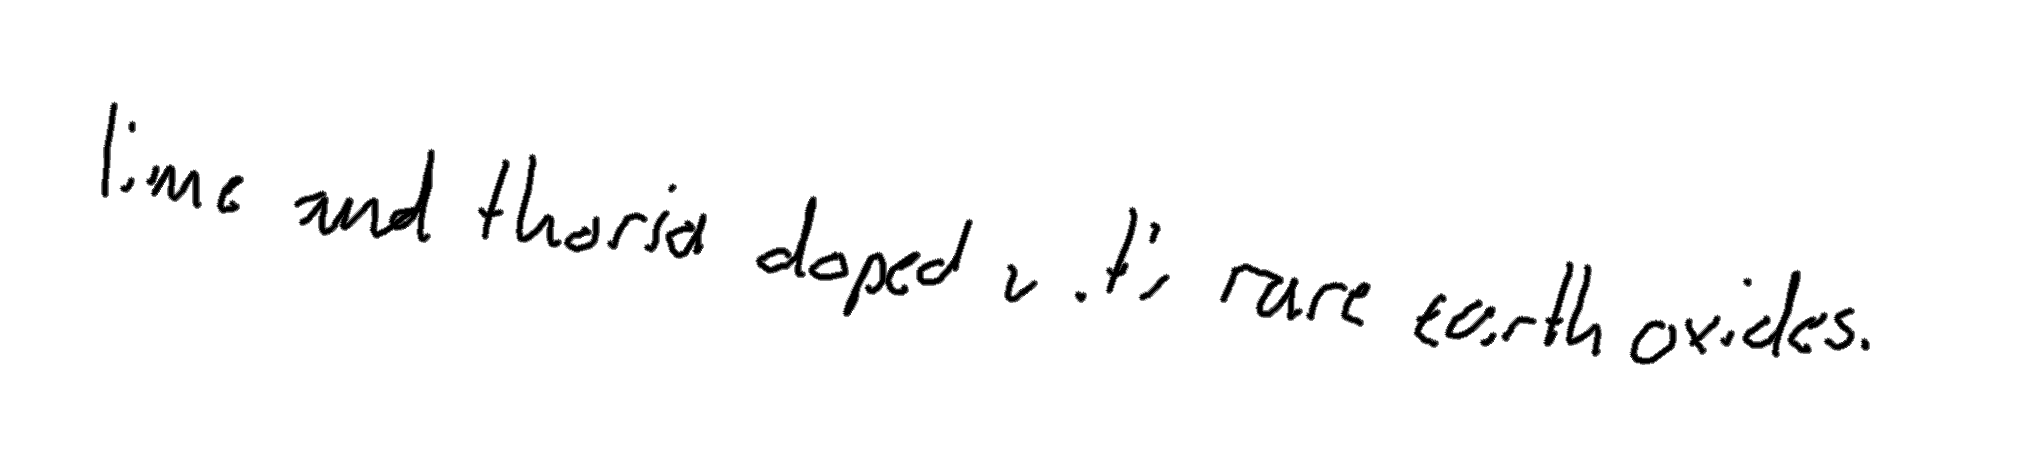 lime and thoria doped with rare earth oxides.